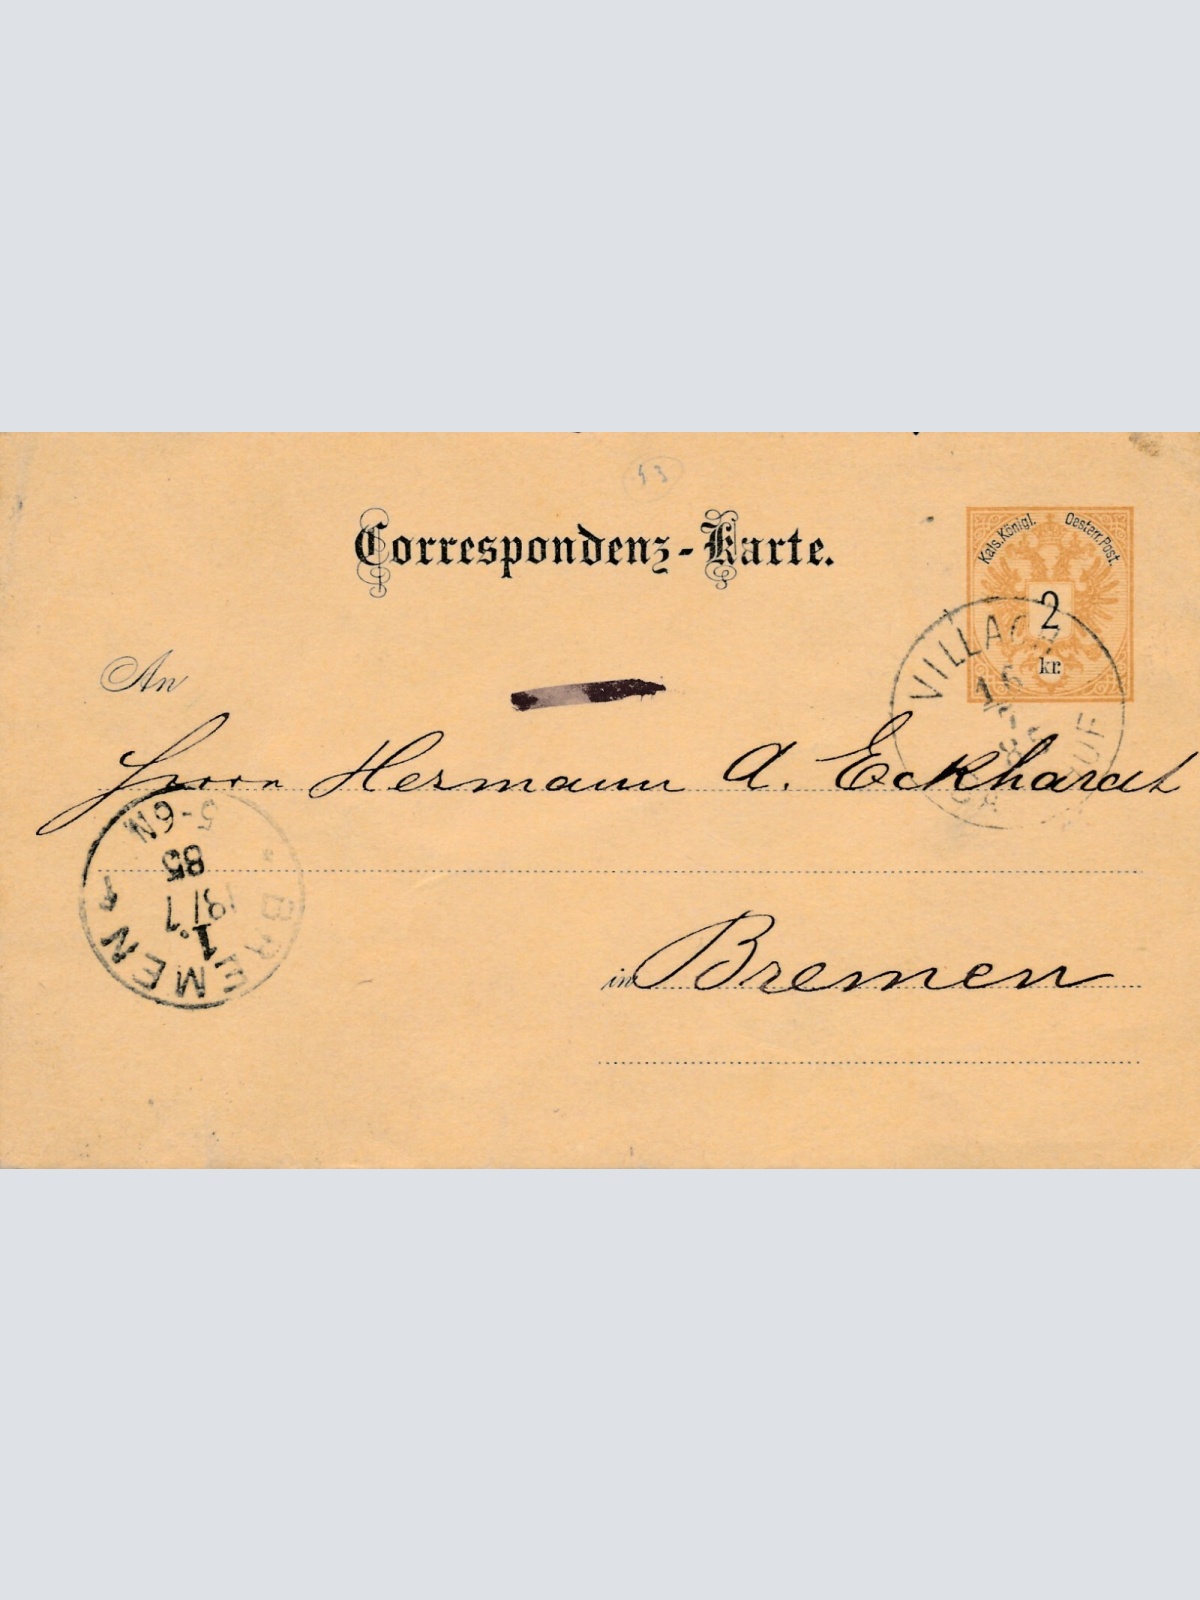 53
Correspondenz-Karte.
Kais. Königl. Oesterr. Post.
2
kr.
VILLACH
16
An
Herrn Hermann A. Eckhardt
5-6N
85
19/7
1.
BREMEN 1
in Bremen